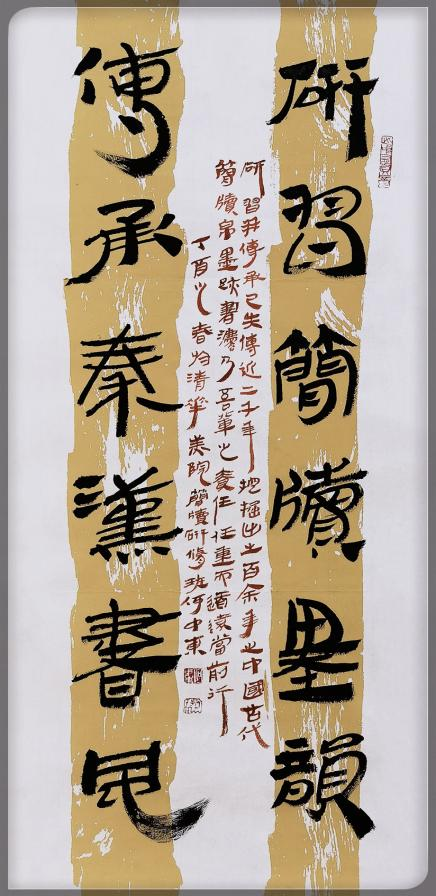 研習簡牘墨韻
研習并傳承已失傳近二千年挖掘出土百余年之中國古代
簡牘帛墨跡書灋乃吾輩之責任任重而道遠當前行
丁酉之春於清華美院簡牘研修班何中東
傳承秦漢書風